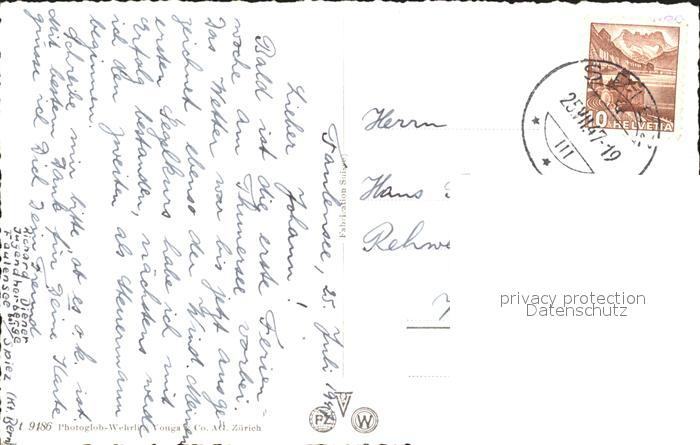 Faulensee, 25. Juli 1947
Lieber Johann!
Bald ist die erste Ferien-
woche am Thunersee vorbei.
Das Wetter war bis jetzt ausge-
zeichnet ebenso der Wind. Meinen
ersten Segelkurs habe ich mit
Erfolg bestanden, nächstens werde
ich den zweiten als Steuermann
beginnen.
Schreibe mir bitte ob es o.k. ist
Mit bestem Dank für Deine Karte
grüsse ich Dich Dein Freund
Richard Diener
Jugendherberge
Faulensee bei Spiez (Kt. Bern
Herrn
Hans
Rehwe
25.VII.47-19
III
10 HELVETIA
privacy protection
Datenschutz
Fabrication Suisse
9486 Photoglob-Wehrli & Vouga & Co. AG. Zürich
PZ V W